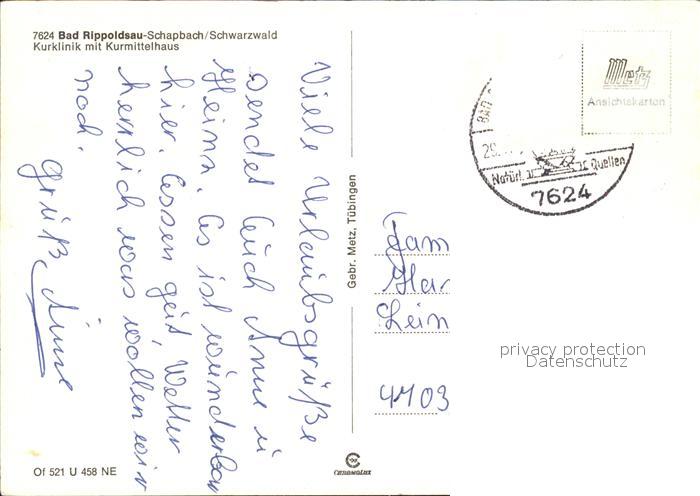 7624 Bad Rippoldsau-Schapbach/Schwarzwald
Kurklinik mit Kurmittelhaus
Viele Urlaubsgrüße
sendet Euch Anne u
Heinz. Es ist wunderbar
hier. Essen gut, Wetter
herrlich was wollen wir
noch.
Grüß Änne
Gebr. Metz, Tübingen
Metz
Ansichtskarten
BAD
Natürl. Quellen
7624
Fam
Lein
4703
privacy protection
Datenschutz
CHROMOLUX
Of 521 U 458 NE